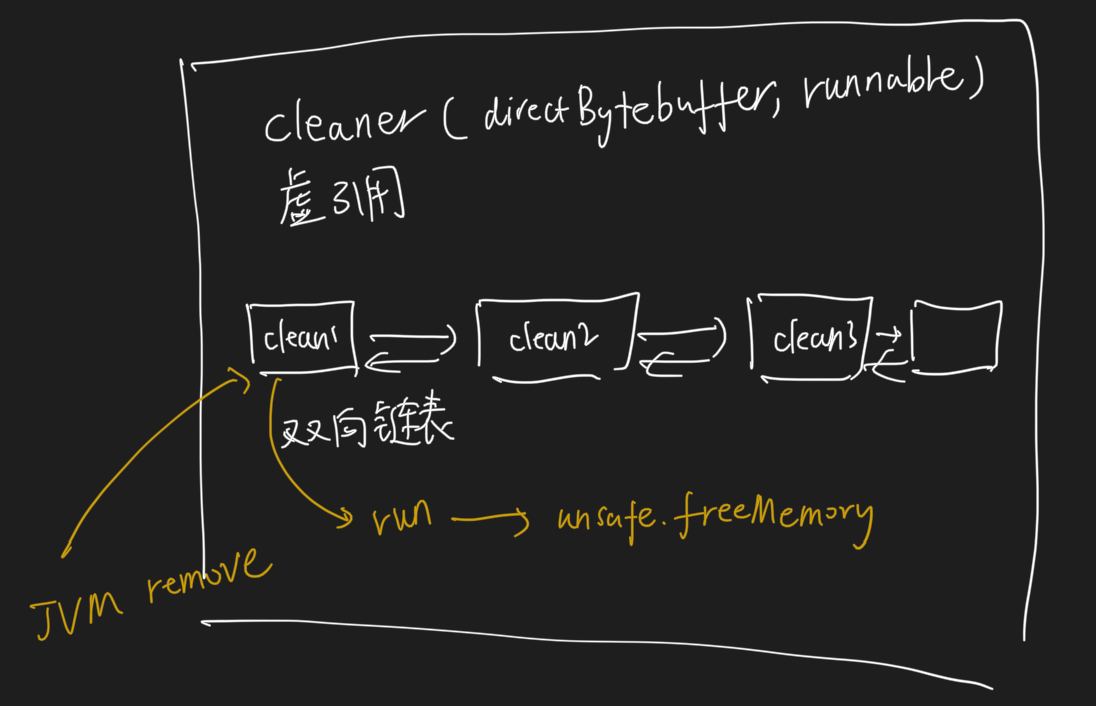 cleaner ( directBytebuffer, runnable )
虚引用
clean1
clean2
clean3
双向链表
run
unsafe.freeMemory
JVM remove